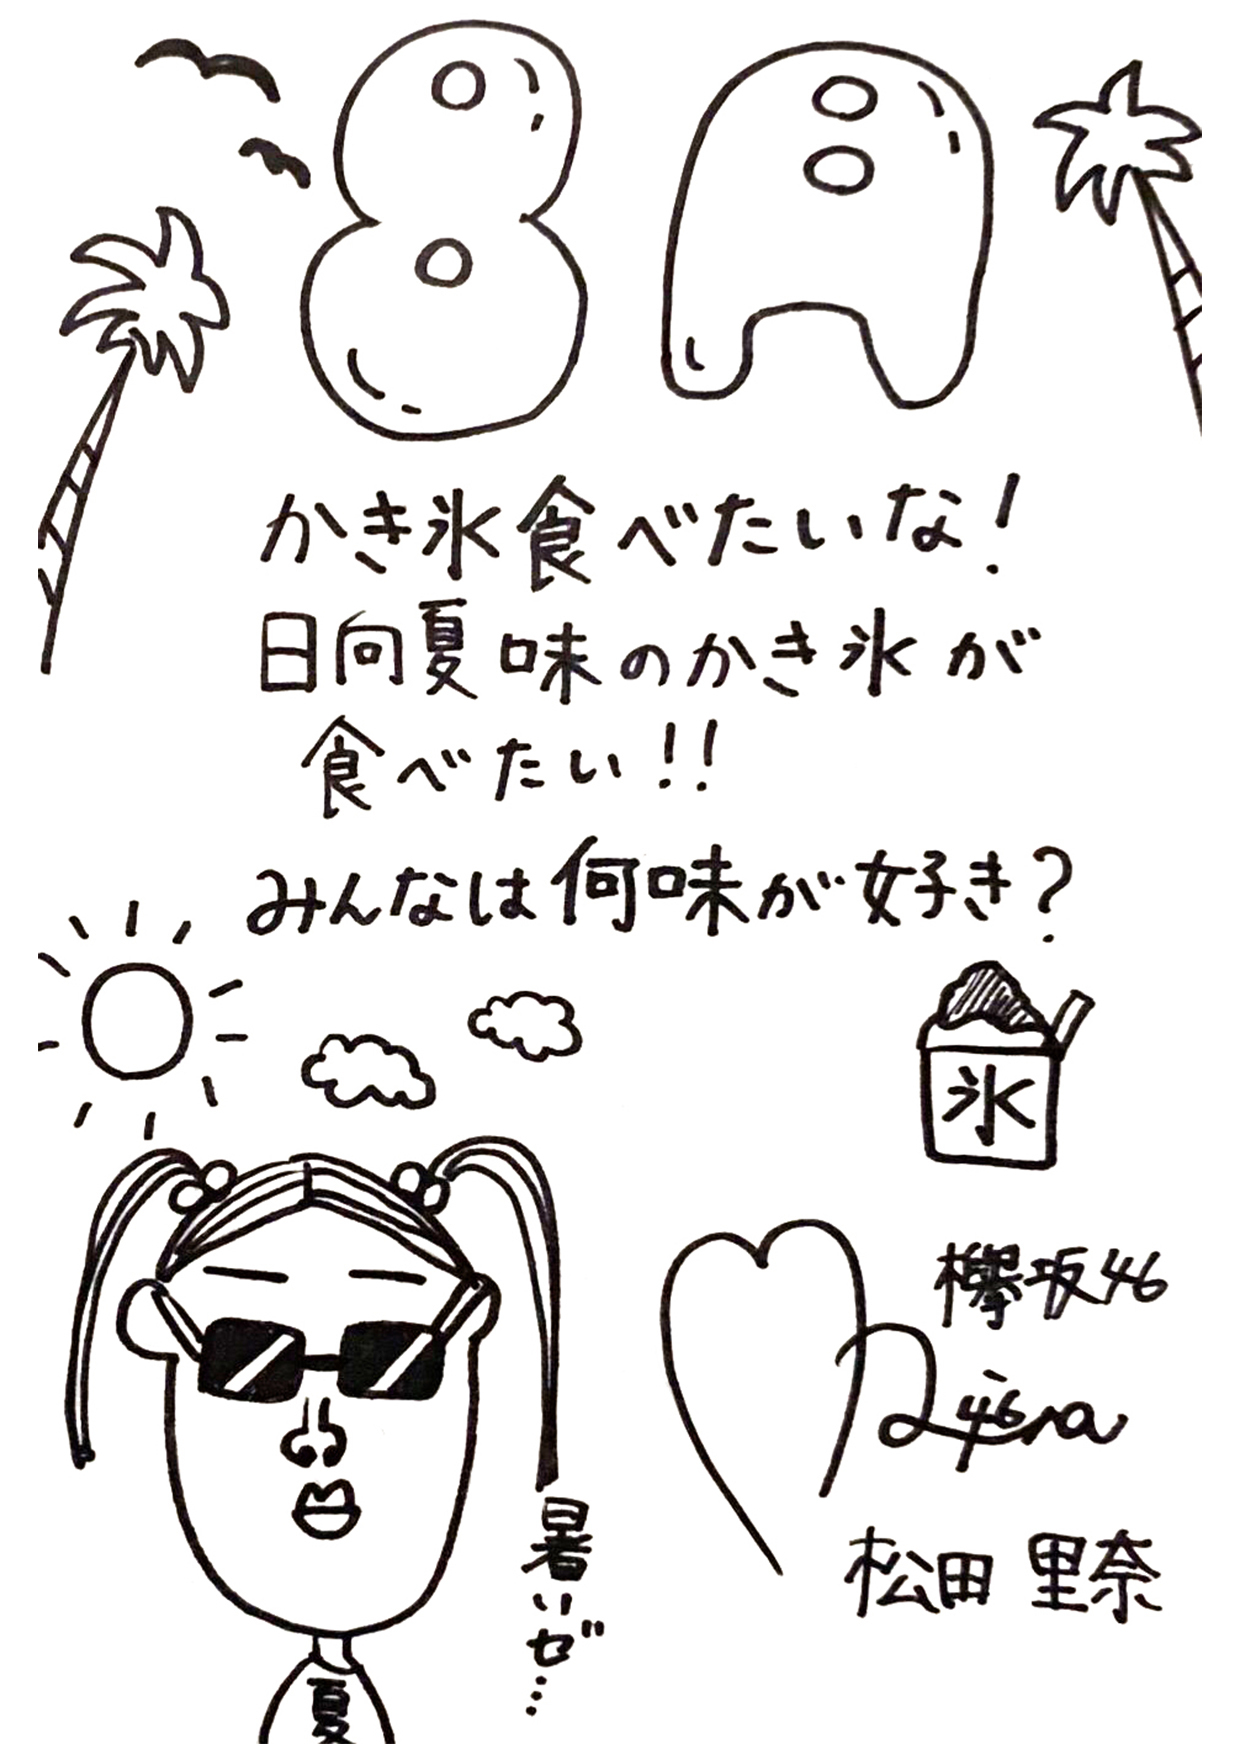 8月
かき氷食べたいな!
日向夏味のかき氷が
食べたい!!
みんなは何味が好き?
氷
欅坂46
松田 里奈
暑いぜ…
夏